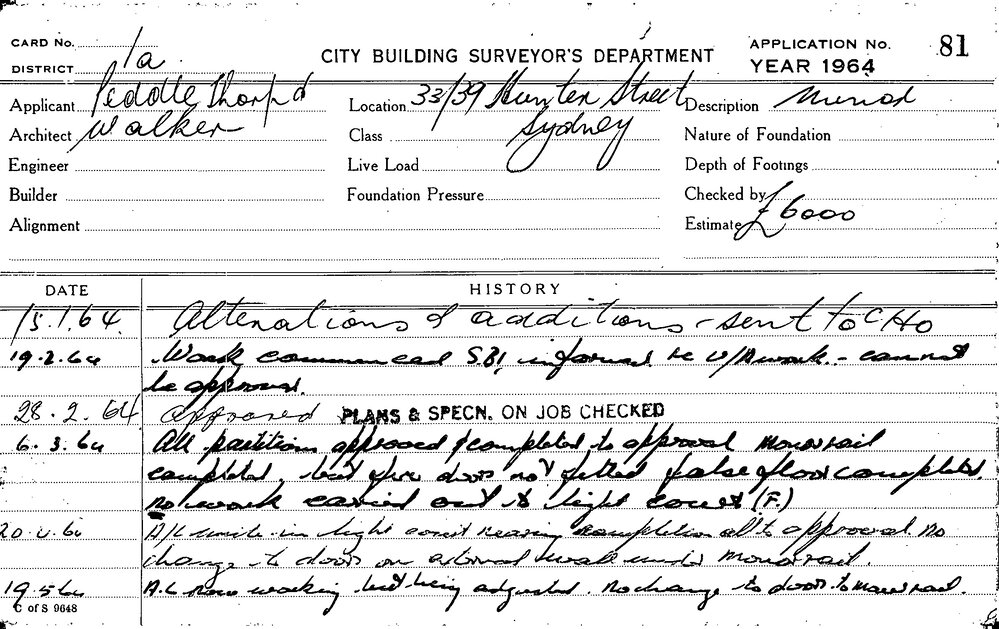 CARD No.
DISTRICT 1a
CITY BUILDING SURVEYOR'S DEPARTMENT
APPLICATION No. 81
YEAR 1964
Applicant Peddle Thorp &
Architect Walker
Engineer
Builder
Alignment
Location 33/39 Hunter Street
Class Sydney
Live Load
Foundation Pressure
Description Minor
Nature of Foundation
Depth of Footings
Checked by
Estimate £6000
DATE HISTORY
15.1.64. Alterations & additions - sent to CHO
19.2.64 Work commenced S.B.I. informed re work - cannot
be approved.
28.2.64 approved PLANS & SPECN. ON JOB CHECKED
6.3.64 All partitions approved & completed to approval monorail
completed, but fire door not fitted false floor completed.
no work carried out to light court (F.)
20.4.64 A/C units in light court nearing completion all to approval no
change to door on external wall under monorail.
19.5.64 A.C now working but being adjusted. No change to door to monorail.
C of S 9648